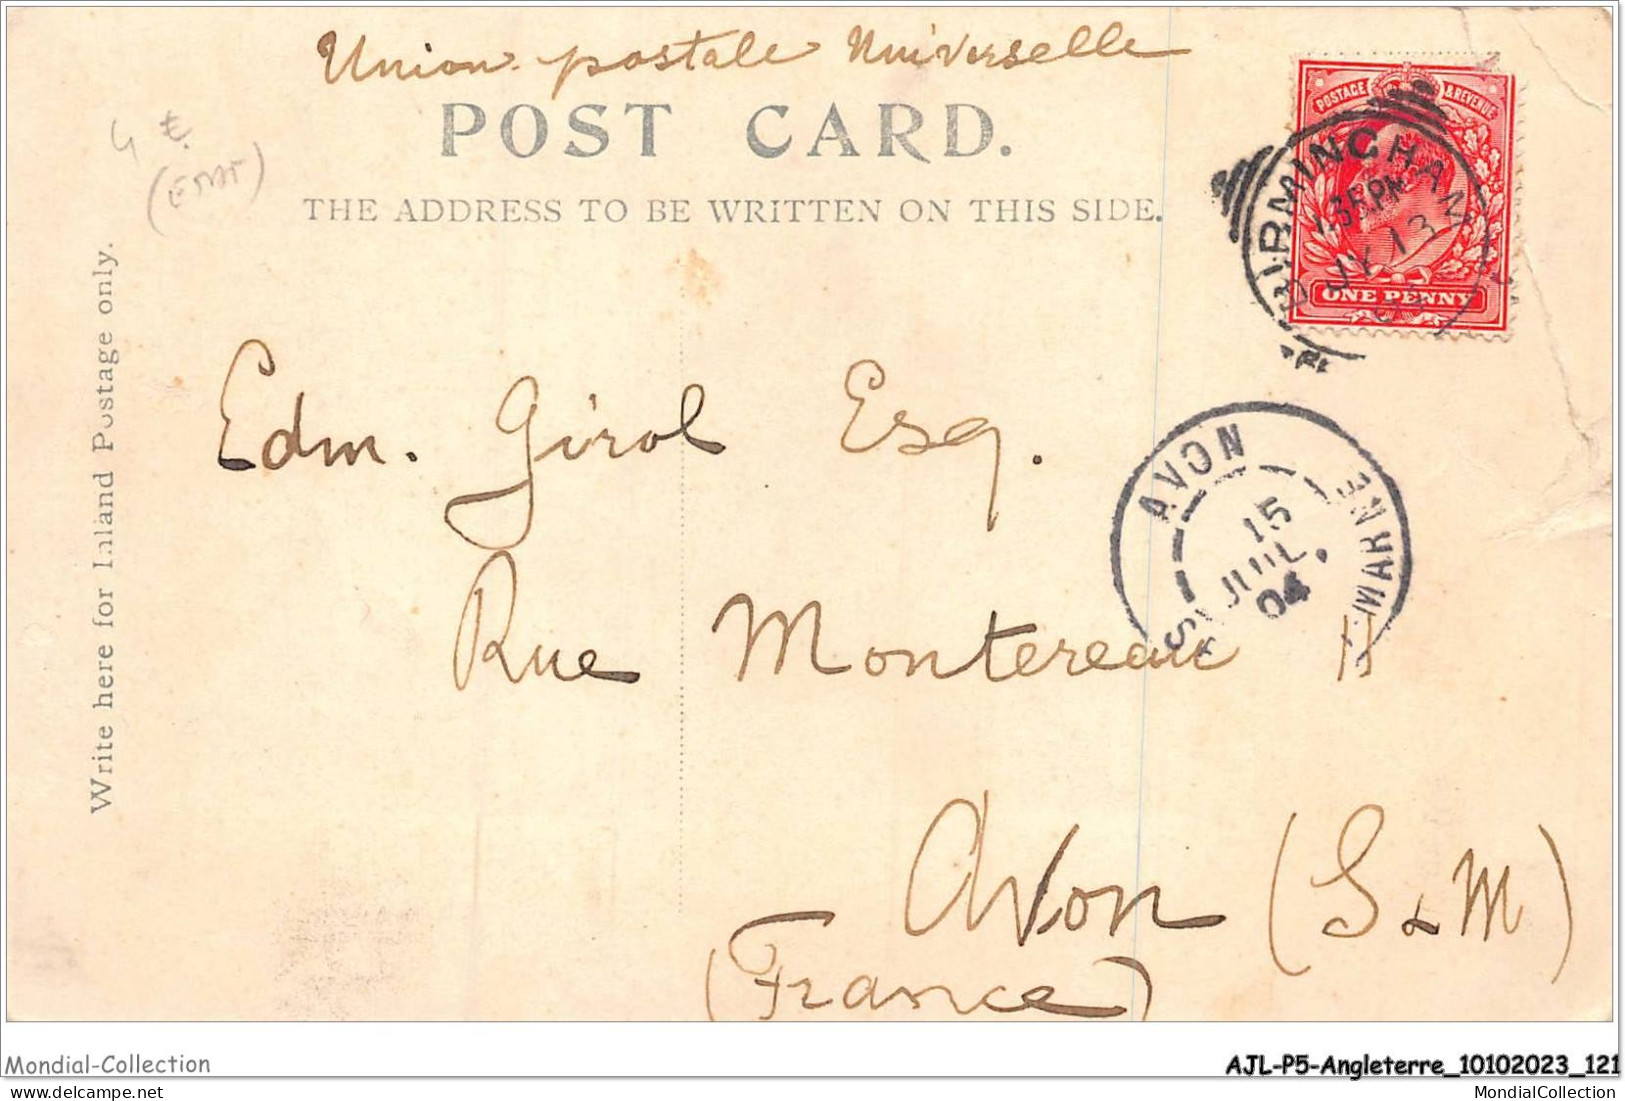 Union postale Universelle
POST CARD.
THE ADDRESS TO BE WRITTEN ON THIS SIDE.
Write here for Inland Postage only.
4 €
POSTAGE & REVENUE
ONE PENNY
BIRMINGHAM
JY 13
Edm. Girol Esq.
AVON
15
JUIL.
04
MARNE
Rue Montereau
Avon (S & M)
(France)
Mondial-Collection
AJL-P5-Angleterre_10102023_121
MondialCollection